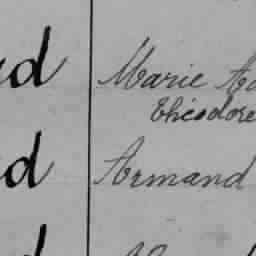 d Marie
Théodore
d Armand
d